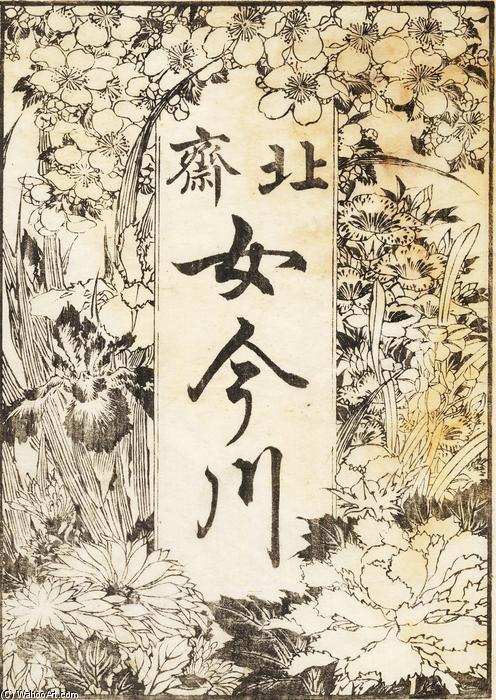 北齋
女今川
(C) WahooArt.com